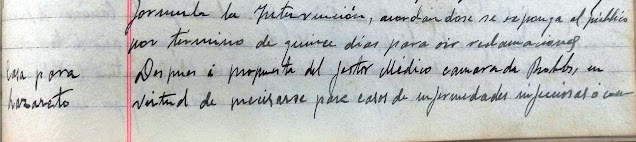 formula la Intervención, acordandose se exponga al público
por termino de quince dias para oir reclamaciones
Casa para
Lazareto
Despues i propuesta del gestor Médico camarada Robles, en
virtud de precisarse para casos de enfermedades infecciosas o